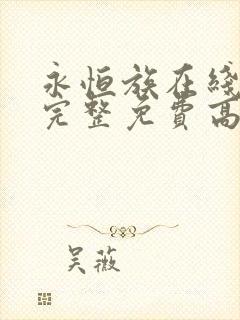 永恒族在綫
完整免費高
吴薇